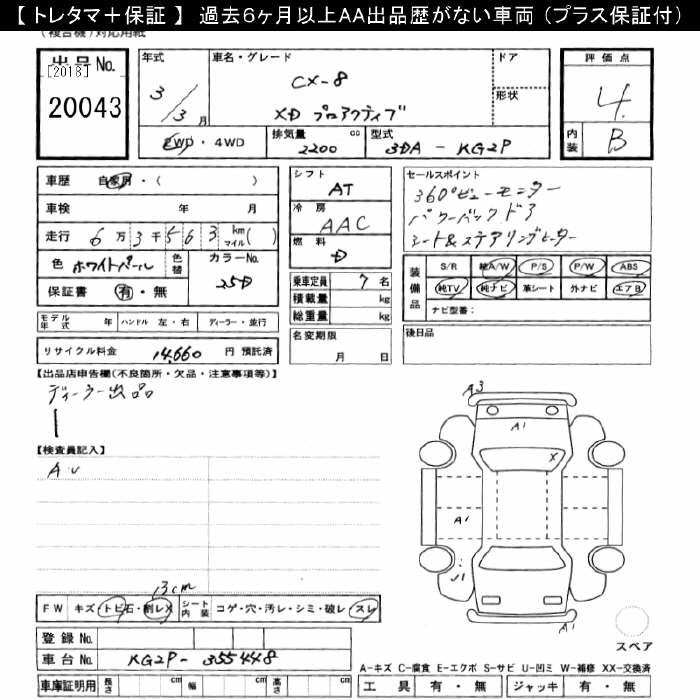 【 トレタマ＋保証 】 過去６ヶ月以上AA出品歴がない車両（プラス保証付）
（複合機）対応用紙
出品No.
[2018]
20043
年式
3／3月
車名・グレード
CX-8
XD プロアクティブ
ドア
形状
2WD・4WD
排気量 2200 cc
型式 3DA - KG2P
評価点
4
内装 B
車歴 自家用・( )
車検 年 月
走行 6万3千563 km マイル( )
色 ホワイトパール 色替 カラーNo. 25D
保証書 有・無
モデル年式 年 ハンドル 左・右 ディーラー・並行
リサイクル料金 14,660 円 預託済
シフト AT
冷房 AAC
燃料 D
乗車定員 7 名
積載量 kg
総重量 kg
名変期限
月 日
セールスポイント
360°ビューモニター
パワーバックドア
シート&ステアリングヒーター
装備品
S/R 純A/W P/S P/W ABS
純TV 純ナビ 革シート 外ナビ エアB
ナビ型番：
後日品
【出品店申告欄(不良箇所・欠品・注意事項等)】
ディーラー出品
【検査員記入】
A・U
A3
A1
X
A1
U1
A1
13cm
FW キズ・トビ石・割レX シート内装 コゲ・穴・汚レ・シミ・破レ スレ
登録No.
車台No. KG2P-355448
車庫証明用 長さ cm 幅 cm 高さ cm
スペア
A-キズ C-腐食 E-エクボ S-サビ U-凹ミ W-補修 XX-交換済
工具 有・無 ジャッキ 有・無